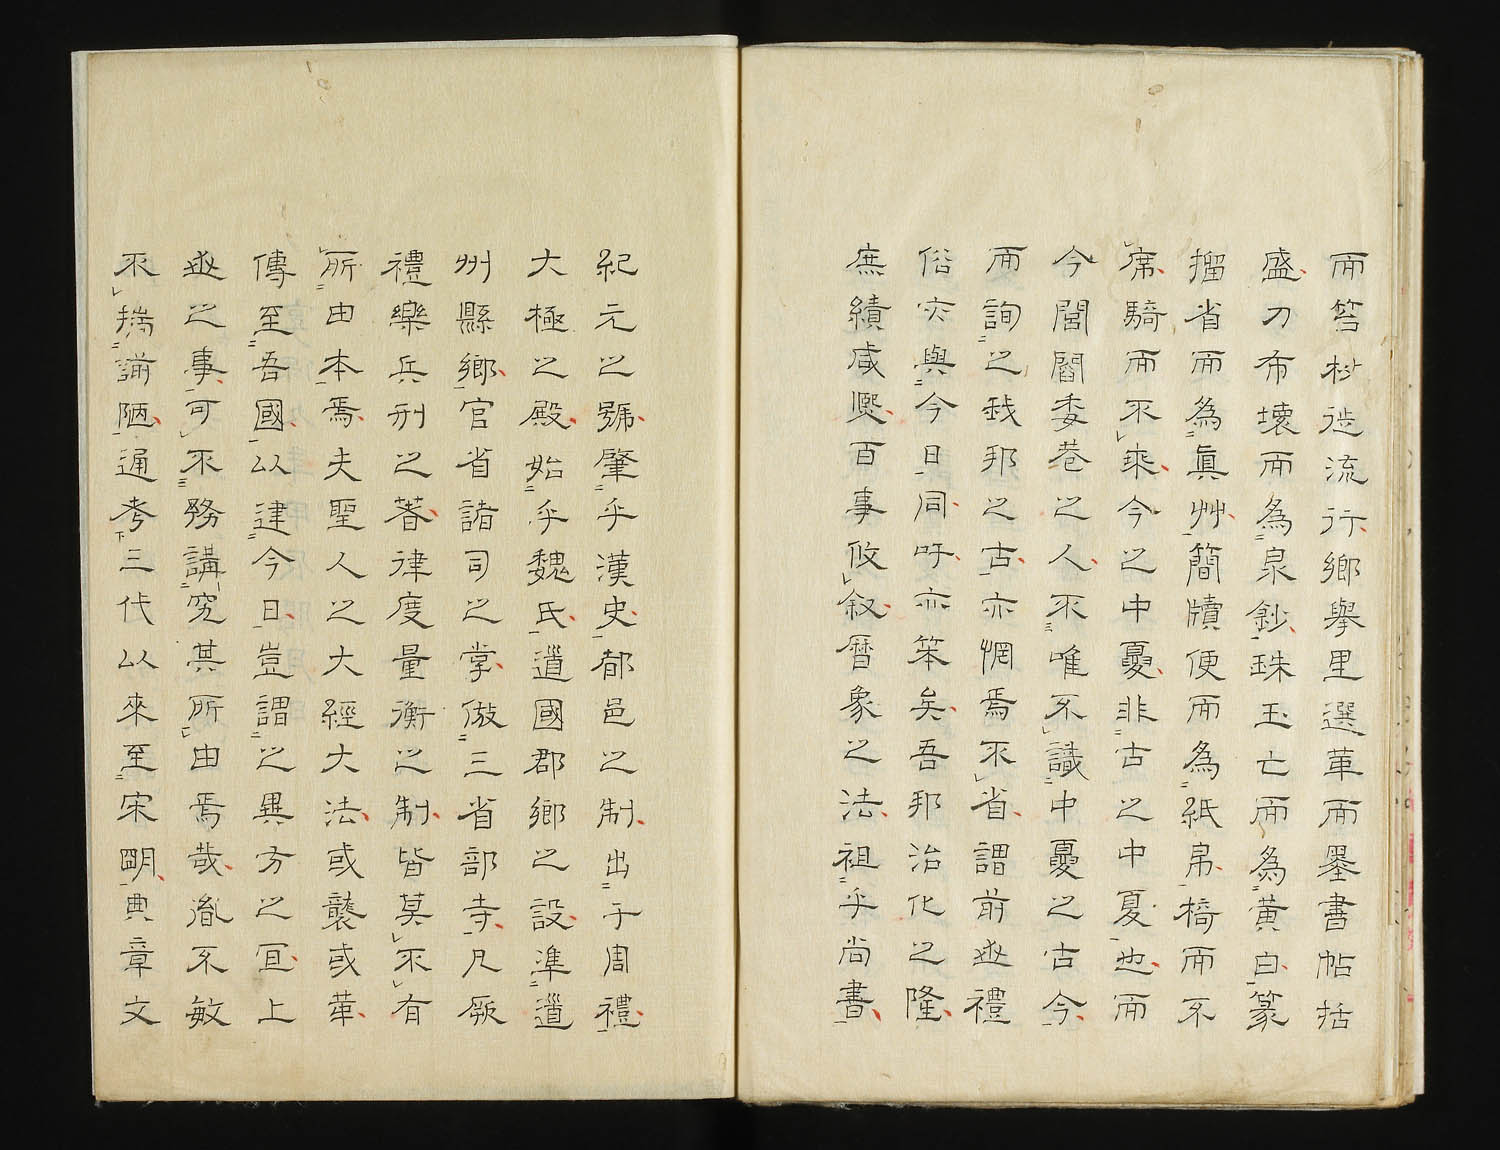 而笞杖徙流行鄉舉里選革而墨書帖括
盛刀布壞而為泉鈔珠玉亡而為黃白篆
省而為眞艸簡牘便而為紙帛椅而不
席騎而不乘今之中夏非古之中夏也而
今閭閻委巷之人不唯不識中夏之古今
而詢之我邦之古亦惘焉不省謂前世禮
俗亦與今日同吁亦笨矣吾邦治化之隆
庶績咸熙百事攸敘曆象之法祖乎尚書
紀元之號肇乎漢史都邑之制出于周禮
大極之殿始乎魏氏道國郡鄉之設準道
州縣鄉官省諸司之掌倣三省部寺凡厥
禮樂兵刑之著律度量衡之制皆莫不有
所由本焉夫聖人之大經大法或襲或革
傳至吾國以逮今日豈謂之異方之宜上
世之事可不務講究其所由焉哉胤不敏
不揣謭陋通考三代以來至宋明典章文